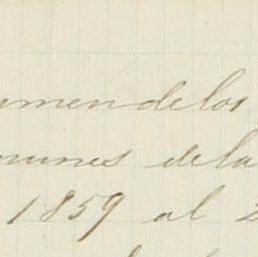 umen de los
munes de la
1859 al 2